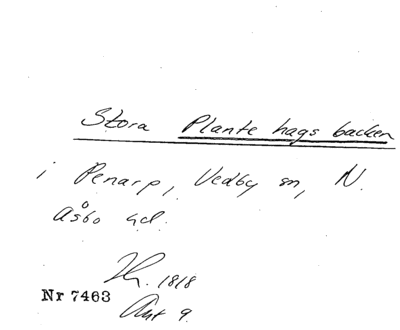 Stora Plantehagsbacken
i Penarp, Vedby sn, N.
Åsbo hd.
1818
Nr 7463
Akt 9